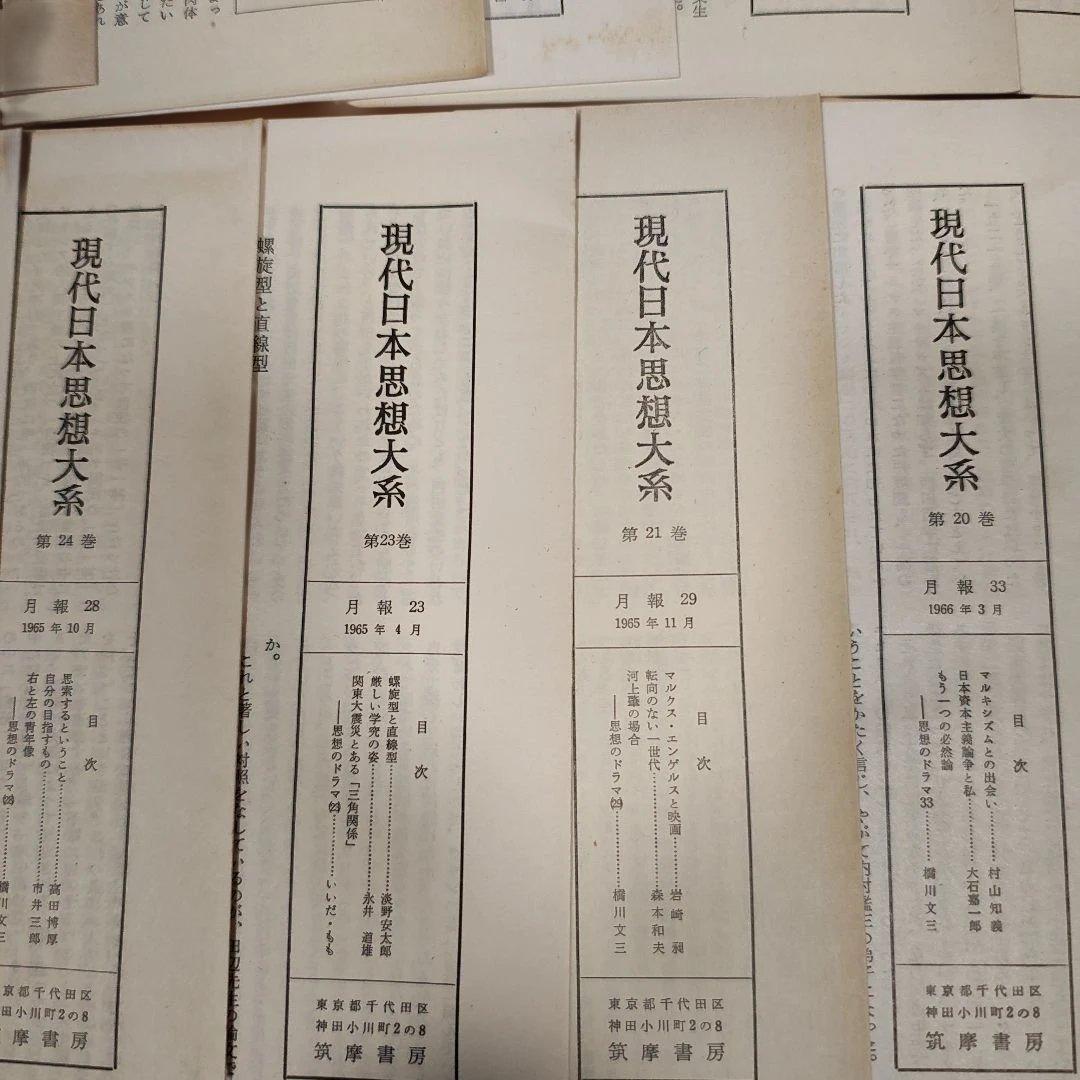 現代日本思想大系
第20巻
月報33
1966年3月
目次
マルキシズムとの出会い………村山知義
日本資本主義論争と私………大石嘉一郎
もう一つの必然論
――思想のドラマ33………橋川文三
東京都千代田区
神田小川町2の8
筑摩書房
現代日本思想大系
第21巻
月報29
1965年11月
目次
マルクス・エンゲルスと映画………岩崎昶
転向のない一世代………森本和夫
河上肇の場合
――思想のドラマ(29)………橋川文三
東京都千代田区
神田小川町2の8
筑摩書房
現代日本思想大系
第23巻
月報23
1965年4月
目次
螺旋型と直線型………淡野安太郎
厳しい学究の姿………永井道雄
関東大震災とある「三角関係」
――思想のドラマ(23)………いいだ・もも
東京都千代田区
神田小川町2の8
筑摩書房
螺旋型と直線型
か。
現代日本思想大系
第24巻
月報28
1965年10月
目次
思索するということ………高田博厚
自分の目指すもの………市井三郎
右と左の青年像
――思想のドラマ(28)………橋川文三
京都千代田区
田小川町2の8
摩書房